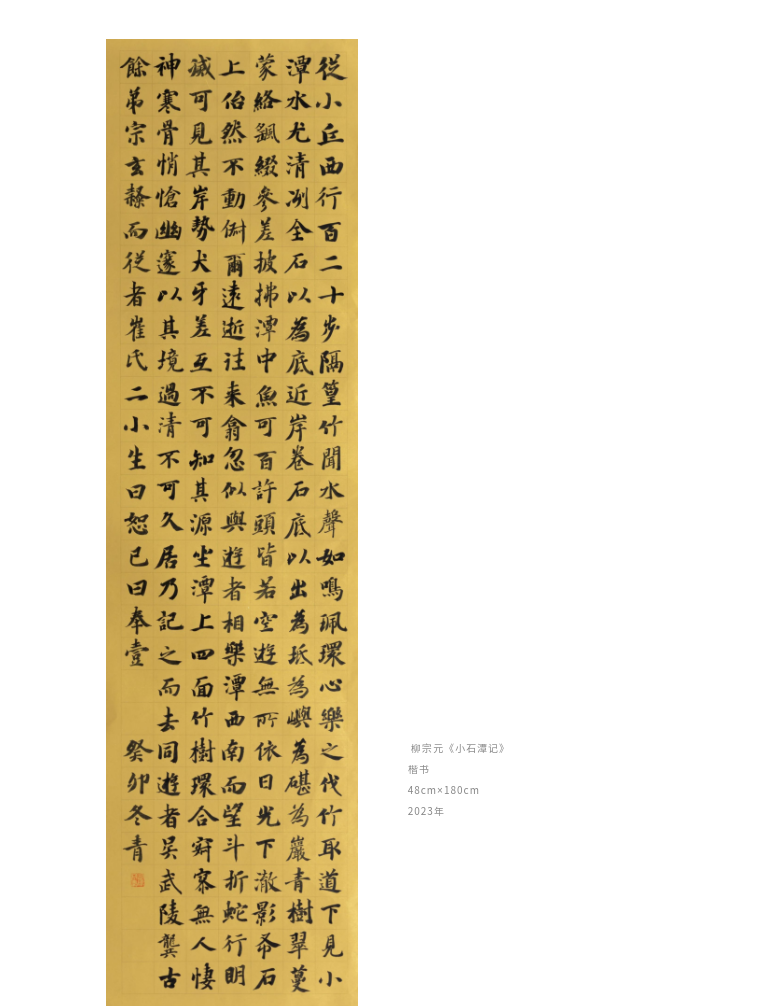 從小丘西行百二十步隔篁竹聞水聲如鳴珮環心樂之伐竹取道下見小
潭水尤清冽全石以為底近岸卷石底以出為坻為嶼為碪為巖青樹翠蔓
蒙絡颻綴參差披拂潭中魚可百許頭皆若空遊無所依日光下澈影布石
上伯然不動俶爾遠逝往来翕忽似與遊者相樂潭西南而望斗折蛇行明
滅可見其岸勢犬牙差互不可知其源坐潭上四面竹樹環合寂寥無人悽
神寒骨悄愴幽邃以其境過清不可久居乃記之而去同遊者吴武陵龔古
餘弟宗玄隸而從者崔氏二小生曰恕己曰奉壹 癸卯冬青
柳宗元《小石潭记》
楷书
48cm×180cm
2023年